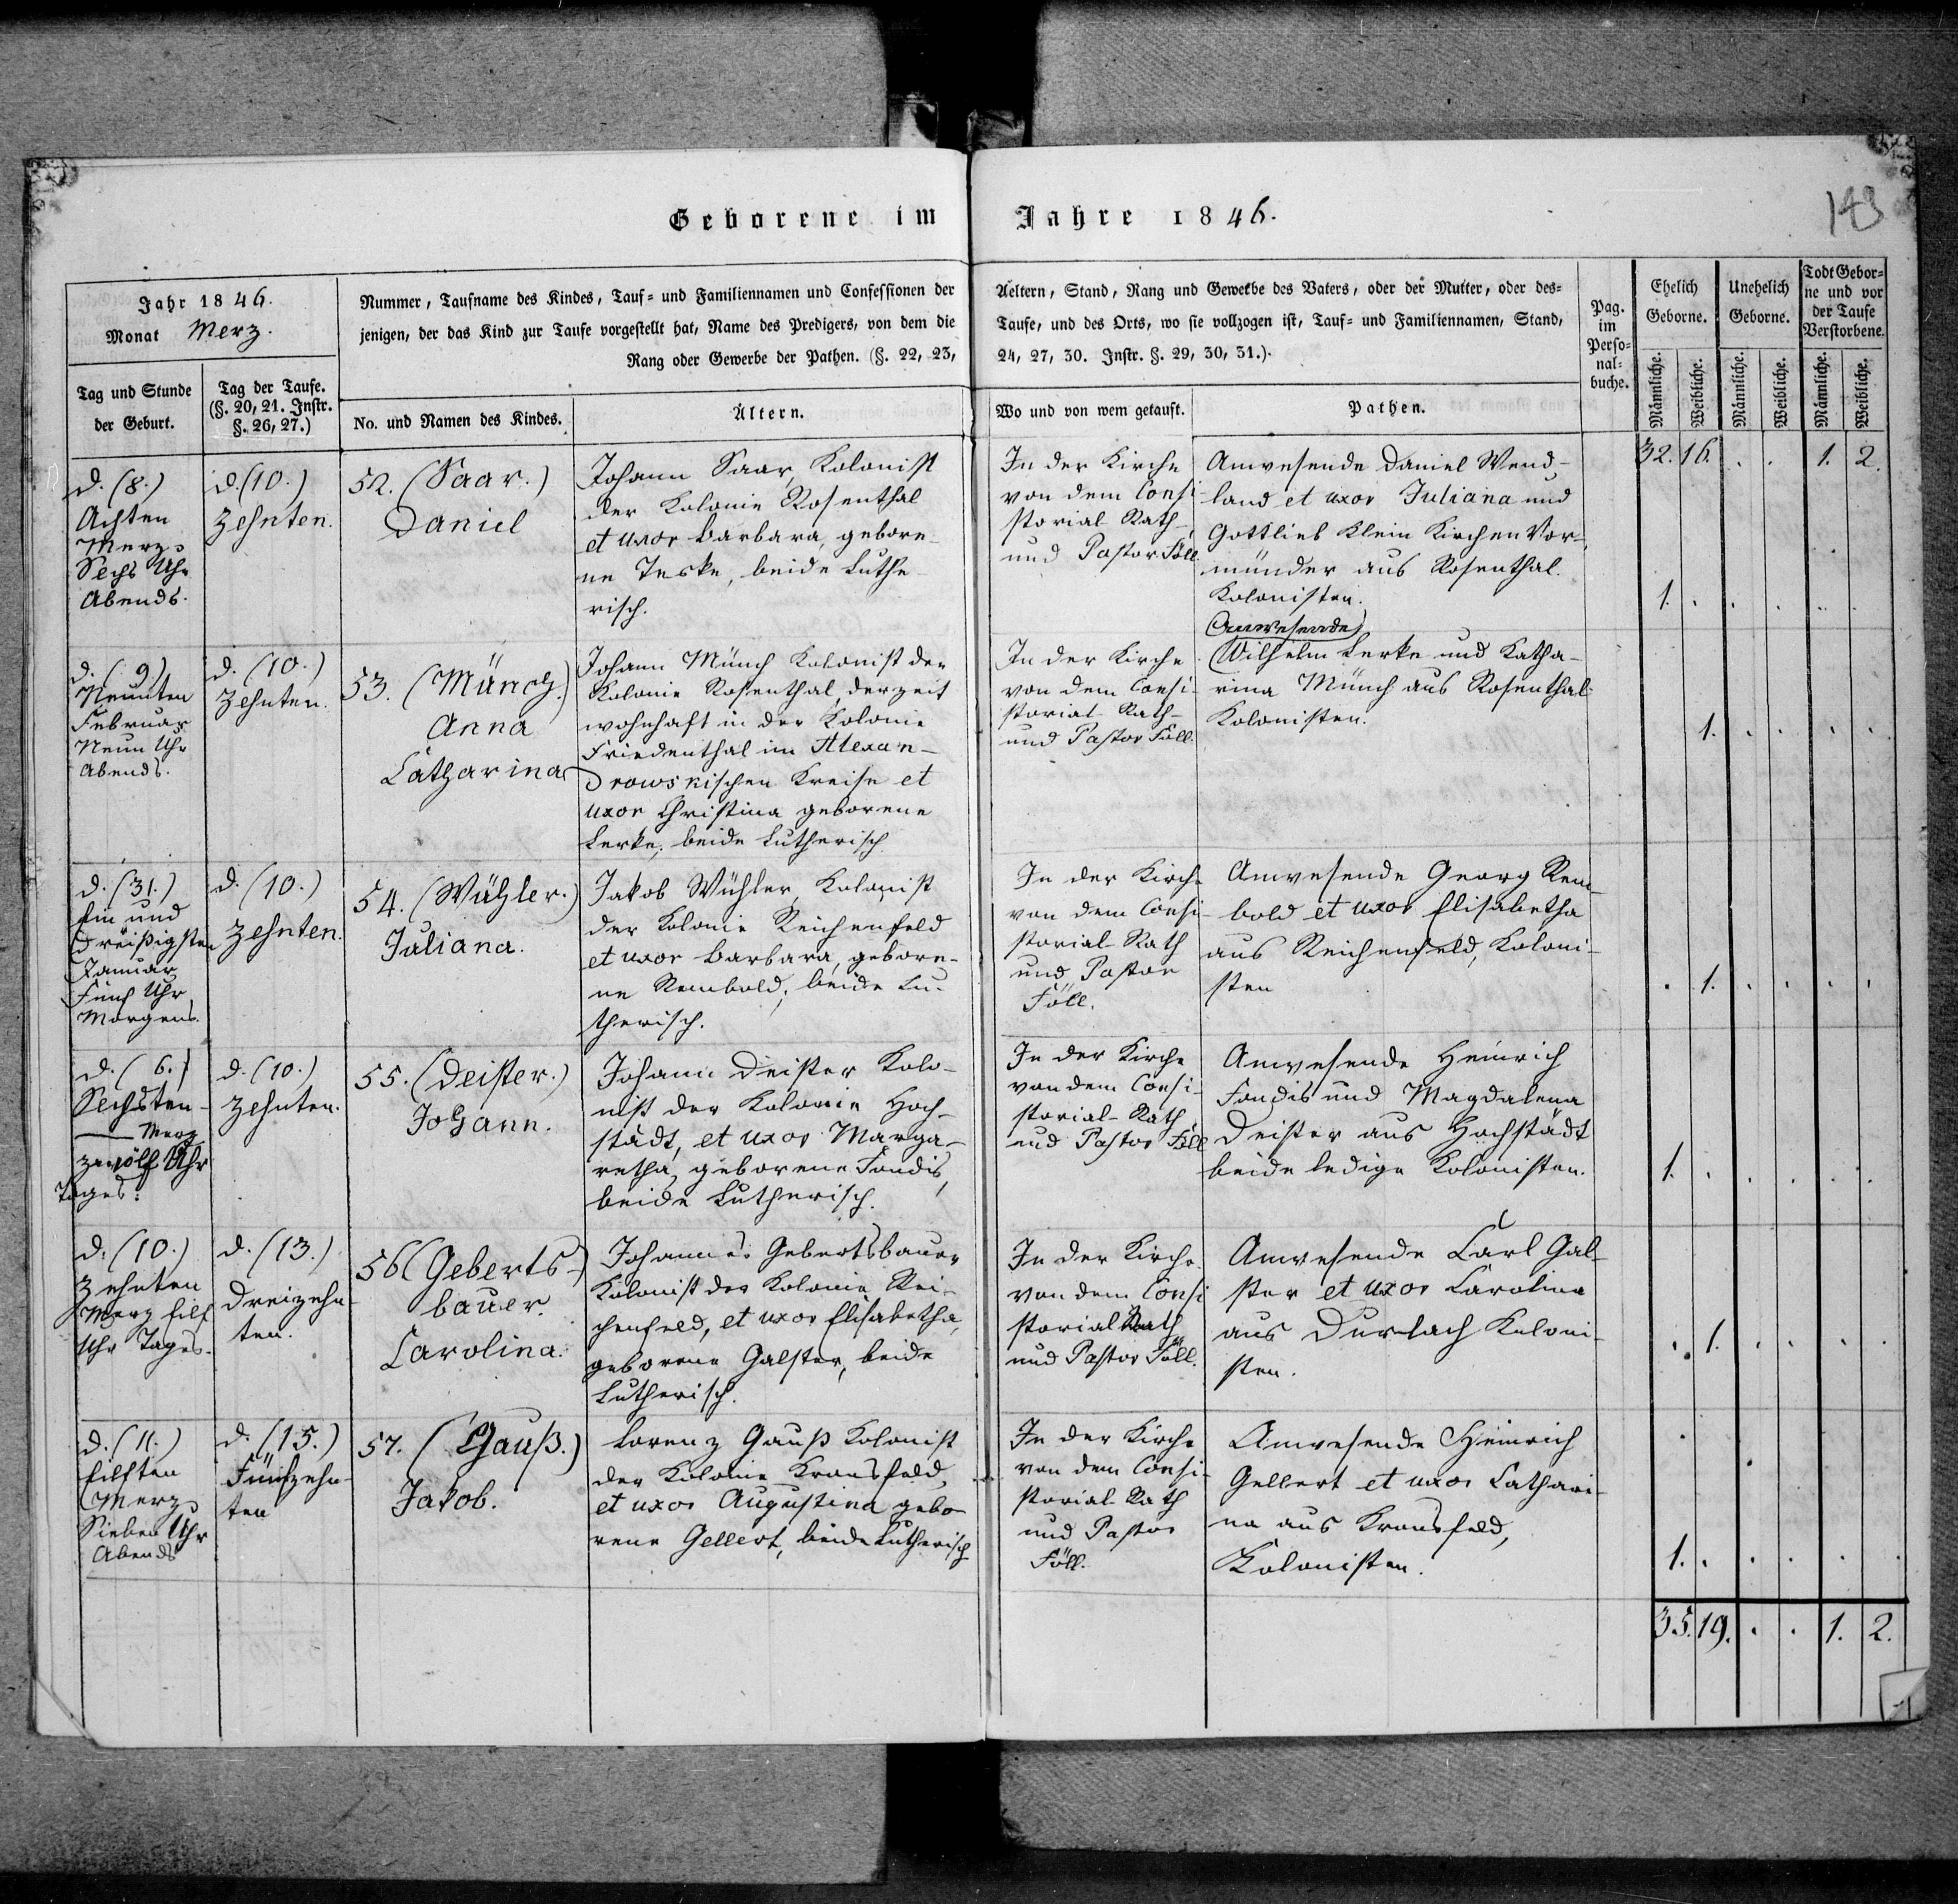 Geborene im Jahre 1846.
143
Jahr 1846.
Monat Merz.
Nummer, Taufname des Kindes, Tauf- und Familiennamen und Confessionen der
jenigen, der das Kind zur Taufe vorgestellt hat, Name des Predigers, von dem die
Rang oder Gewerbe der Pathen. (§. 22, 23,
Aeltern, Stand, Rang und Gewerbe des Vaters, oder der Mutter, oder des-
Taufe, und des Orts, wo sie vollzogen ist, Tauf- und Familiennamen, Stand,
24, 27, 30. Instr. §. 29, 30, 31.).
Pag. im Perso-nal-buche.
Ehelich Geborne.
Unehelich Geborne.
Todt Gebor-ne und vor der Taufe Verstorbene.
Tag und Stunde
der Geburt.
Tag der Taufe.
(§. 20, 21. Instr.
§. 26, 27.)
No. und Namen des Kindes.
Ältern.
Wo und von wem getauft.
Pathen.
Männliche. Weibliche. Männliche. Weibliche. Männliche. Weibliche.
32. 16. . . 1. 2.
d. (8.)
Achten
Merz
Sechs Uhr
Abends.
d. (10.)
Zehnten.
52. (Saar.)
Daniel
Johann Saar, Kolonist
der Kolonie Rosenthal
et uxor Barbara, gebore-
ne Teske, beide Luthe
risch.
In der Kirche
von dem Consi
storial-Rath
und Pastor Föll
Anwesende Daniel Wend-
land et uxor Juliana und
Gottlieb Klein Kirchen Vor-
münder aus Rosenthal.
Kolonisten.
1. . . . . .
d. (9)
Neunten
Februar
Neun Uhr
Abends.
d. (10.)
Zehnten.
53. (Münch.)
Anna
Catharina
Johann Münch Kolonist der
Kolonie Rosenthal derzeit
wohnhaft in der Kolonie
Friedenthal im Alexan-
drowskischen Kreise et
uxor Christina geborene
Lerke, beide Lutherisch
In der Kirche
von dem Consi-
storial-Rath-
und Pastor Föll.
(Anwesende)
Wilhelm Lerke und Katha-
rina Münch aus Rosenthal
Kolonisten.
1. . . . .
d. (31.)
Ein und
Dreißigsten
Januar
Fünf Uhr
Morgens.
d. (10.)
Zehnten.
54. (Wühler.)
Juliana.
Jakob Wühler, Kolonist
der Kolonie Reichenfeld
et uxor Barbara, gebore-
ne Rembold, beide Lu-
therisch.
In der Kirche
von dem Consi-
storial-Rath
und Pastor
Föll.
Anwesende Georg Rem-
bold et uxor Elisabetha
aus Reichenfeld, Koloni-
sten
. 1. . . . .
d. (6.)
Sechsten
Merz
zwölf Uhr
Tages.
d. (10.)
Zehnten.
55. (Deister.)
Johann.
Johann Deister Kolo-
nist der Kolonie Hoch-
städt, et uxor Marga-
retha, geborene Fondis,
beide Lutherisch.
In der Kirche
von dem Consi-
storial-Rath
und Pastor Föll
Anwesende Heinrich
Fondis und Magdalena
Deister aus Hochstädt
beide ledige Kolonisten.
1. . . . . .
d. (10.)
Zehnten
Merz Eilf
Uhr Tages.
d. (13.)
Dreizehn-
ten.
56 (Geberts-
bauer.
Carolina.
Johannes Gebertsbauer
Kolonist der Kolonie Rei-
chenfeld, et uxor Elisabetha,
geborene Galster, beide
Lutherisch.
In der Kirche
von dem Consi
storial Rath
und Pastor Föll.
Anwesende Carl Gal-
ster et uxor Carolina
aus Durlach Koloni-
sten.
. 1. . . . .
d. (11.)
Eilften
Merz
Sieben Uhr
Abends
d. (15.)
Fünfzehn-
ten
57. (Gauß.)
Jakob.
Lorenz Gauß Kolonist
der Kolonie Kronsfeld,
et uxor Augustina gebo-
rene Gellert, beide Lutherisch
In der Kirche
von dem Consi-
storial-Rath
und Pastor
Föll.
Anwesende Heinrich
Gellert et uxor Cathari-
na aus Kronsfeld,
Kolonisten.
1. . . . . .
35. 19. . . 1. 2.